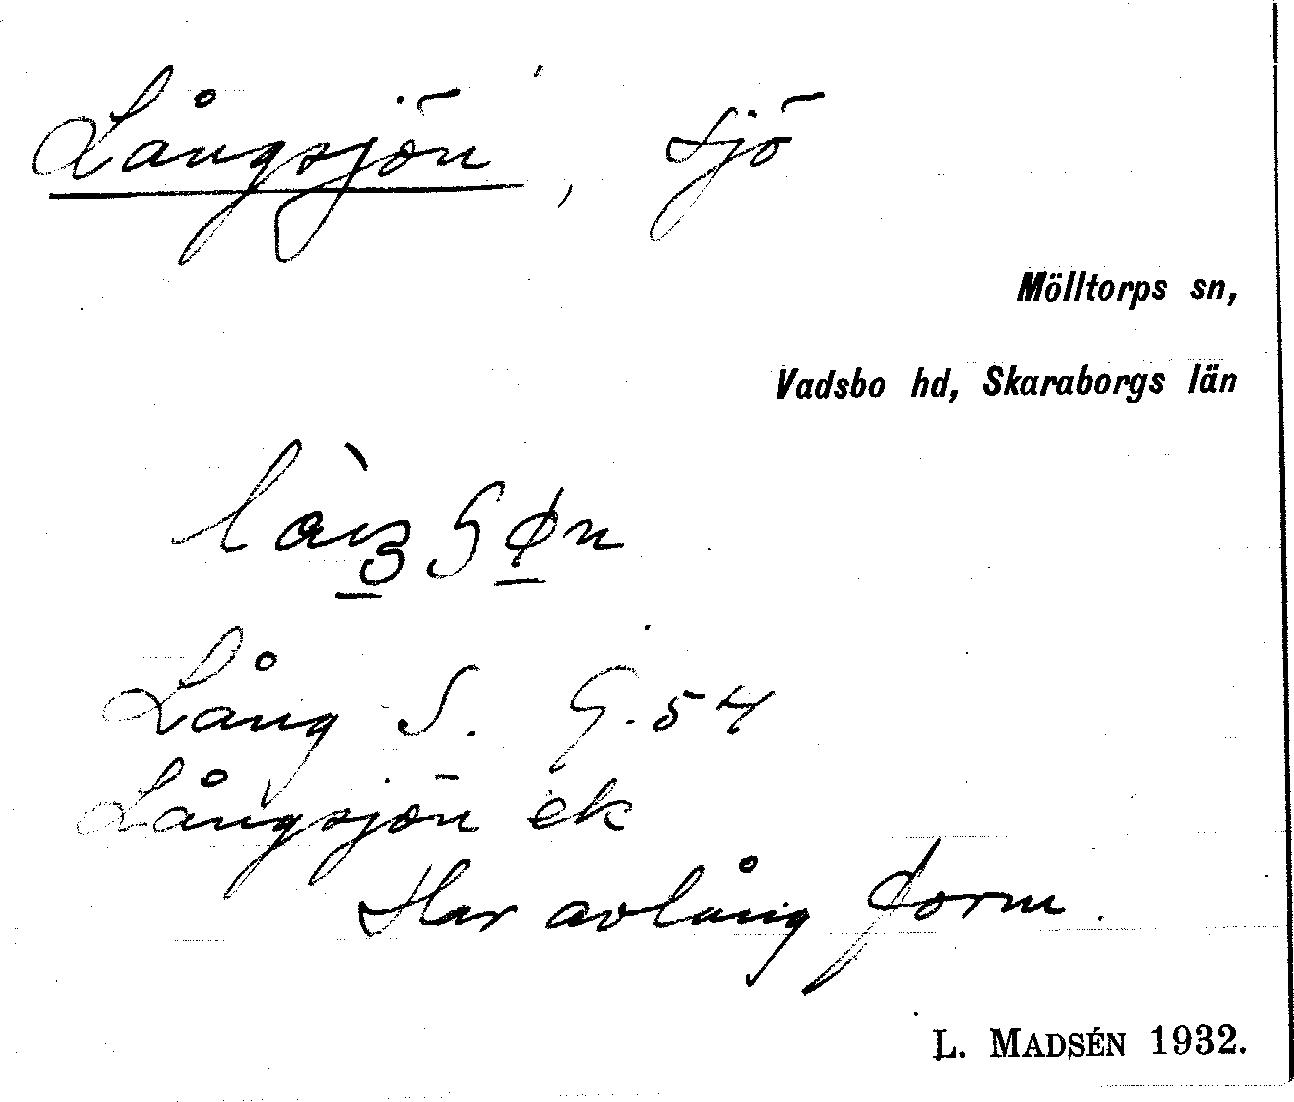 Långsjön, sjö
Mölltorps sn,
Vadsbo hd, Skaraborgs län
Lång S. G. 54
Långsjön ek
Har avlång form.
L. MADSÉN 1932.